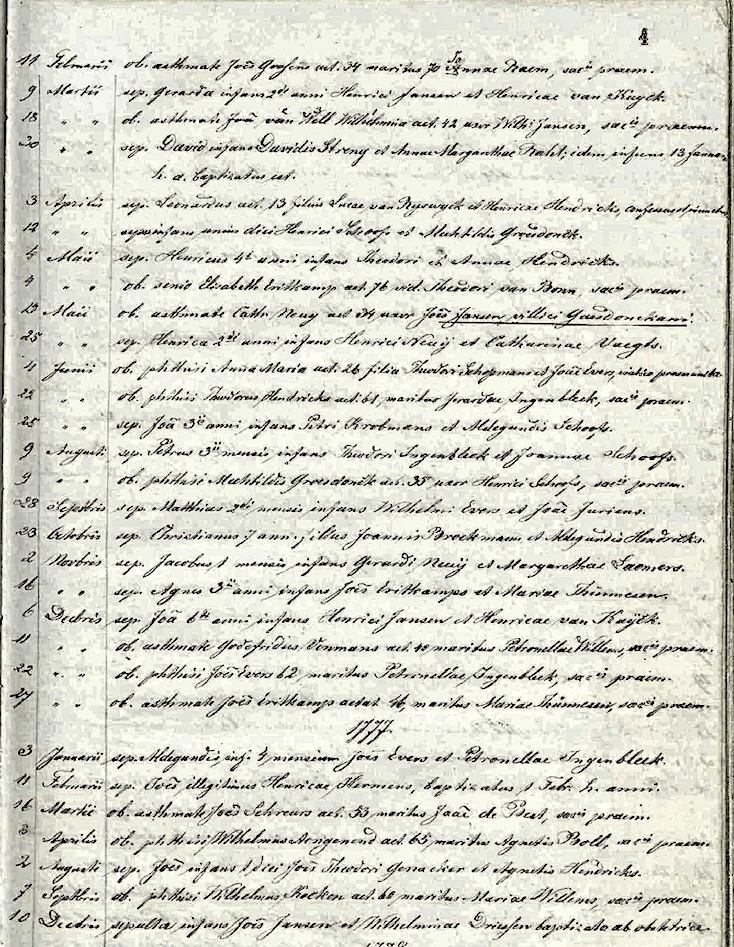 4
11 Februarii ob. asthmate Joës Goosens aet. 34 maritus Annae Raem, sacis praem.
9 Martii sep. Gerarda infans 2di anni Henrici Jansen et Henricae van Kuyck.
18 " " ob. asthmate Joä van Well Wilhelmina aet. 42 uxor Wilh: Jansen, sacis praem.
30 " " sep. David infans Davidis Streng et Annae Margarethae Raht; idem infans 13 Januar.
h. a. baptizatus est.
3 Aprilis sep. Leonardus aet. 13 filius Lucae van Ryswyck et Henricae Hendricks, confessus et
12 " " sep. infans unius diei Henrici Schoofs et Mechtildis Groesdonck.
5 Maii sep. Henricus 4ti anni infans Theodori et Annae Hendricks.
4 " " ob. senio Elisabeth Eritkamp aet. 76 vid. Theodori van Bonn, sacis praem.
13 Maii ob. asthmate Cath: Neuy aet 34 uxor Joës Jansen, villici Gaesdonckani.
25 " " sep. Henrica 2di anni infans Henrici Neuij et Catharinae Vaegts.
4 Junii ob. phthisi Anna Maria aet. 26 filia Theodori Schopmans et Joäe Evers, viatico praemunita.
22 " " ob. phthisi Theodorus Hendricks aet. 61, maritus Gerardae Ingenbleek, sacis praem.
25 " " sep. Joä 3ii anni infans Petri Krobmans et Aldegundis Schoofs.
9 Augusti sep. Petrus 3ii mensis infans Theodori Ingenbleek et Joannae Schoofs.
9 " " ob. phthisi Mechtildis Groesdonck aet. 35 uxor Henrici Schoofs, sacis praem.
28 Septbris sep. Matthias 2di mensis infans Wilhelmi Evers et Joäe Juriens.
23 Octobris sep. Christianus 7 ann. filius Joannis Brockmann et Aldegundis Hendricks.
2 Novbris sep. Jacobus 1 mensis infans Gerardi Neuij et Margarethae Laemers.
16 " " sep. Agnes 3ii anni infans Joës Eritkamps et Mariae Thünnesen.
6 Decbris sep. Joä 6ti anni infans Henrici Jansen et Henricae van Kuyck.
11 " " ob. asthmate Godefridus Venmans aet. 48 maritus Petronellae Willems, sacis praem.
22 " " ob. phthisi Joës Evers 62, maritus Petronellae Ingenbleek, sacis praem.
27 " " ob. asthmate Joës Eritkamp aetat. 46, maritus Mariae Thünnesen, sacis praem.
1777.
3 Januarii sep. Aldegundis, inf. 4 mensium Joës Evers et Petronellae Ingenbleek.
11 Februarii sep. Joës illegitimus Henricae Hermens, baptizatus 1 Febr. h. anni.
16 Martii ob. asthmate Joës Schreurs aet. 53 maritus Joäe de Best, sacis praem.
3 Aprilis ob. phthisi Wilhelmus Aengenend aet. 65 maritus Agnetis Boll, sacis praem.
2 Augusti sep. Joës infans 1 diei Joës Theodori Genacker et Agnetis Hendricks.
7 Septbris ob. phthisi Wilhelmus Kocken aet. 68 maritus Mariae Willems, sacis praem.
10 Decbris sepulta infans Joës Jansen et Wilhelminae Driessen baptizata ab obstetrice.
1778